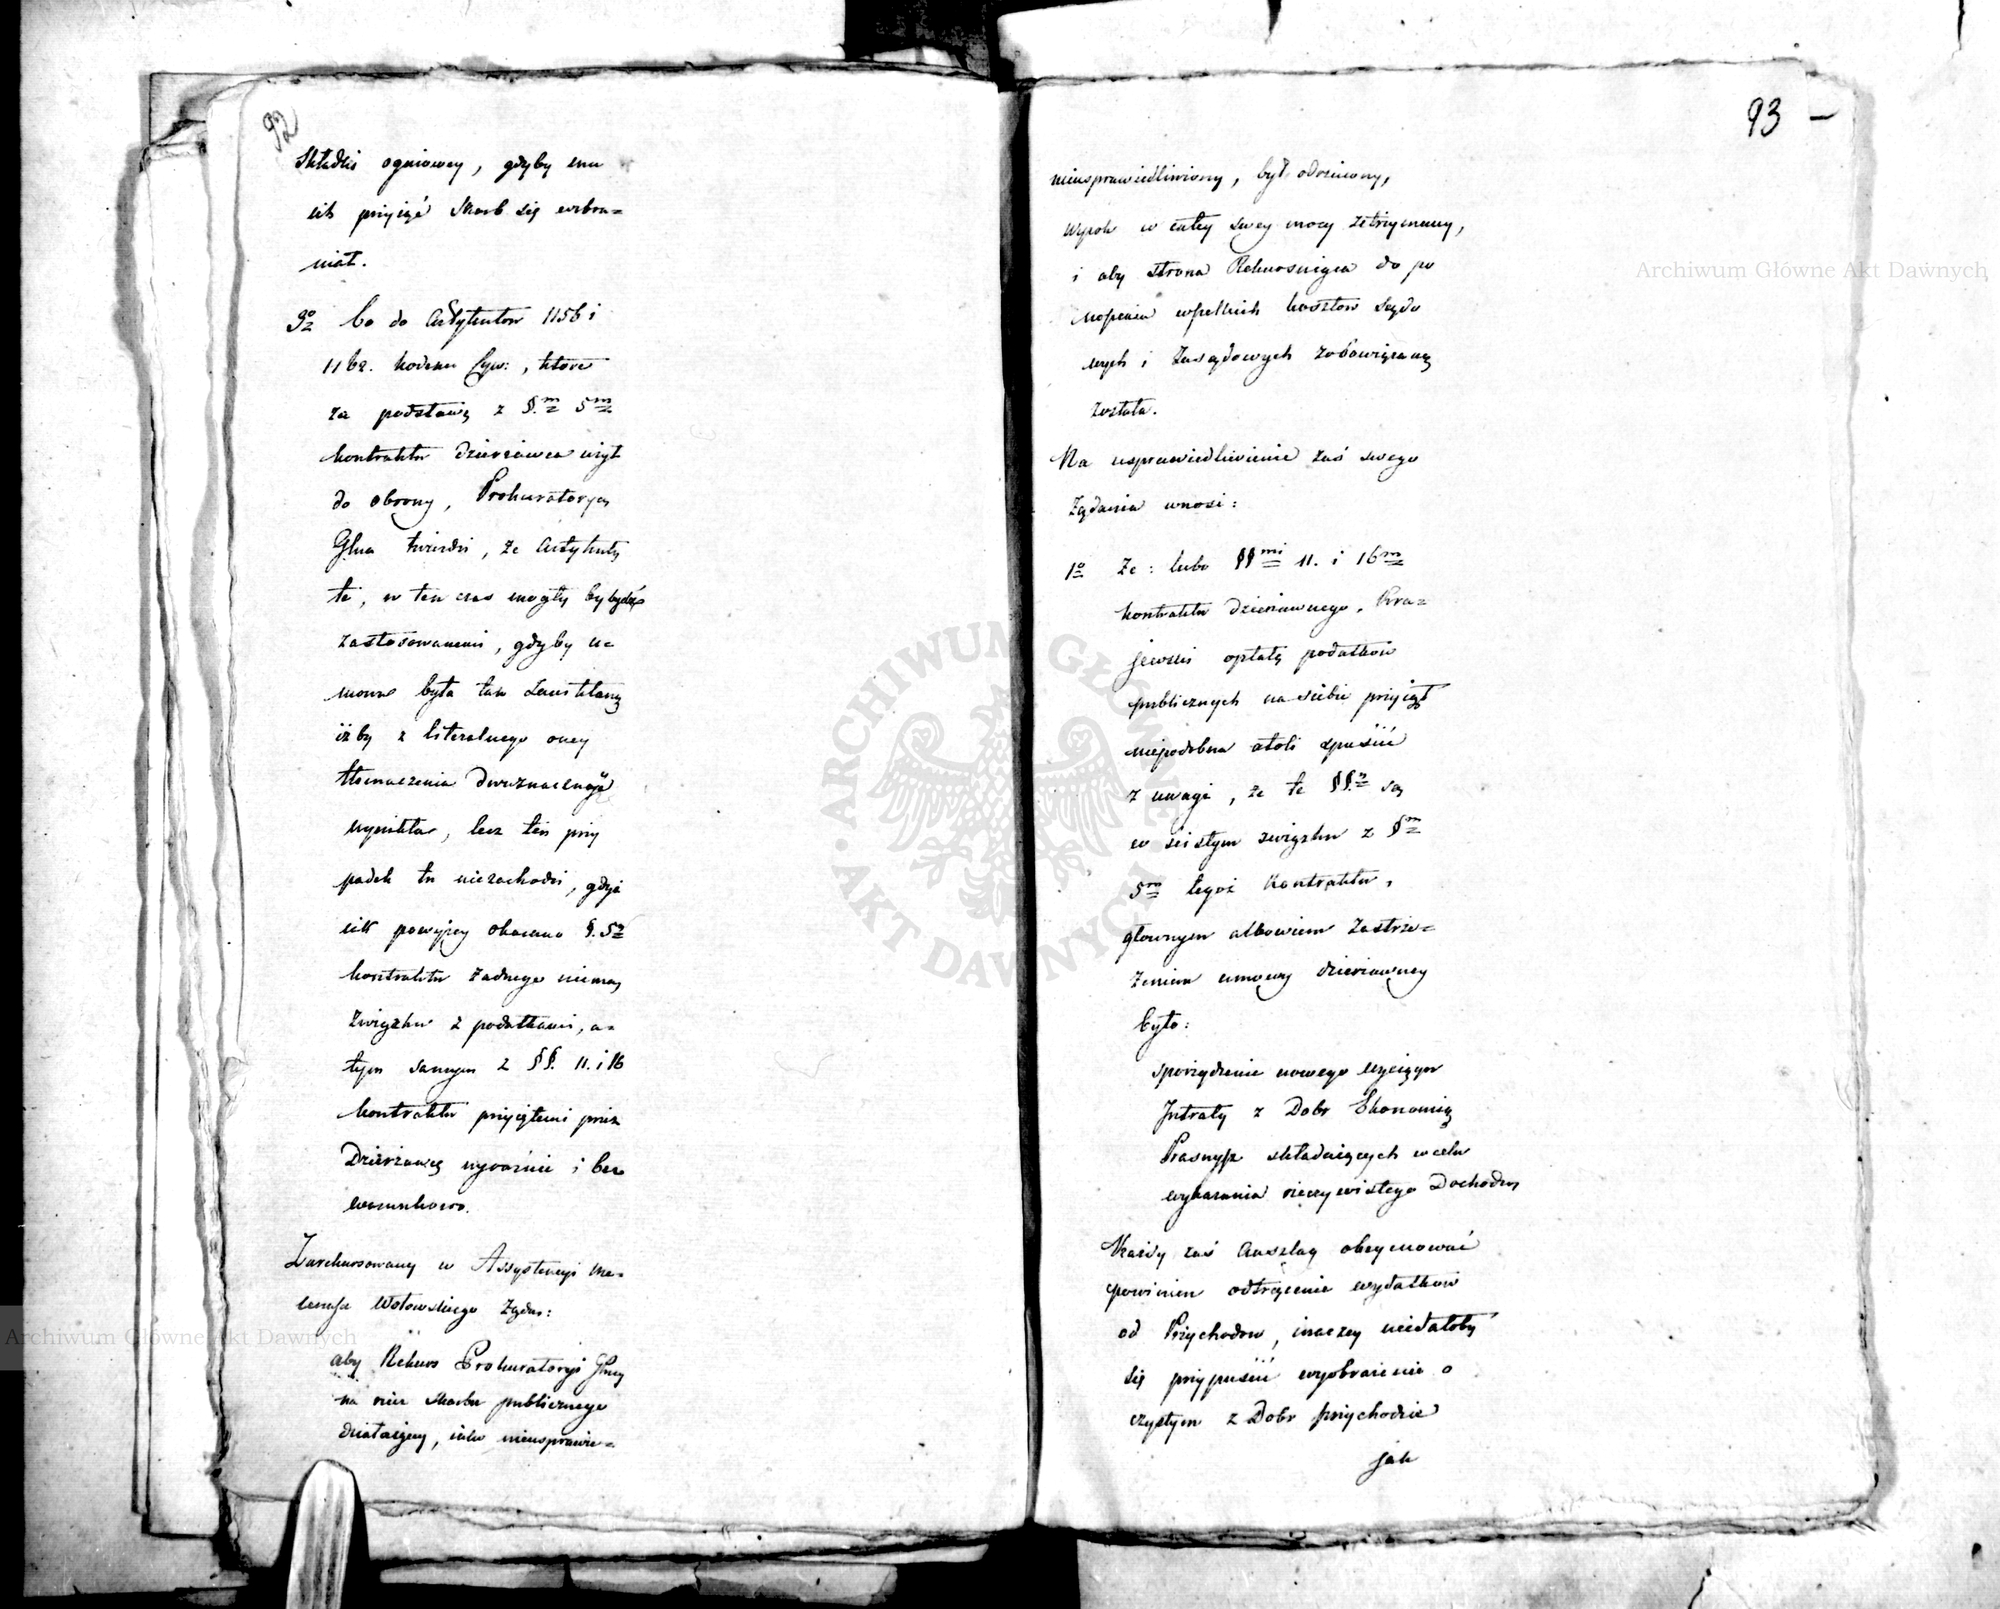 92
Składki ogniowey, gdyby mu
ich przyiąć Skarb się wzbra=
niał.
3º Co do Artykułów 1156 i
1162. Kodexu Cyw:, które
za podstawę z §.m 5m
kontraktu dzierżawca wziął
do obrony, Prokuratorya
Głna twierdzi, że Artykuły
te, w ten czas mogły by bydź
zastosowanemi, gdyby u=
mowa była tak
iżby z literalnego oney
tłomaczenia dwuznaczność
wynikła, lecz ten przy
padek tu niezachodzi, gdyż
iak powyżey okazano §. 5ty
kontraktu żadnego niema
związku z podatkami, a=
tym samym z §§. 11. i 16
kontraktu przyiętemi przez
Dzierżawcę wyraźnie i bez
warunkowo.
Zarekursowany w Assystencyi Me=
cenasa Wołowskiego żąda:
aby Rekurs Prokuratoryi Głney
na rzecz Skarbu publicznego
działaiącey, iako nieusprawie=
93 —
nieusprawiedliwiony, był odrzucony,
wyrok w całey swey mocy utrzymany,
i aby strona Rekursuiąca do po
noszenia wszelkich kosztów sądo
wych i zasądowych zobowiązaną
została.
Na usprawiedliwienie zaś swego
żądania wnosi:
1º Że: lubo §§mi 11. i 16m
kontraktu dzierżawnego, Kra=
jewski opłatę podatków
publicznych na siebie przyiął
niepodobna atoli spuścić
z uwagi, że te §§. są
w ścisłym związku z §m
5m tegoż Kontraktu,
głównym albowiem zastrze=
żeniem umowy dzierżawney
było:
sporządzenie nowego wyciągu
Intraty z Dóbr Ekonomią
Prasnysz składaiących w celu
wykazania rzeczywistego Dochodu
Każdy zaś Anszlag obeymować
powinien odtrącenie wydatków
od Przychodów, inaczey niedałoby
się przypuścić wyobrażenie o
czystym z Dóbr przychodzie
jak
Archiwum Główne Akt Dawnych
Archiwum Główne Akt Dawnych
ARCHIWUM GŁÓWNE AKT DAWNYCH